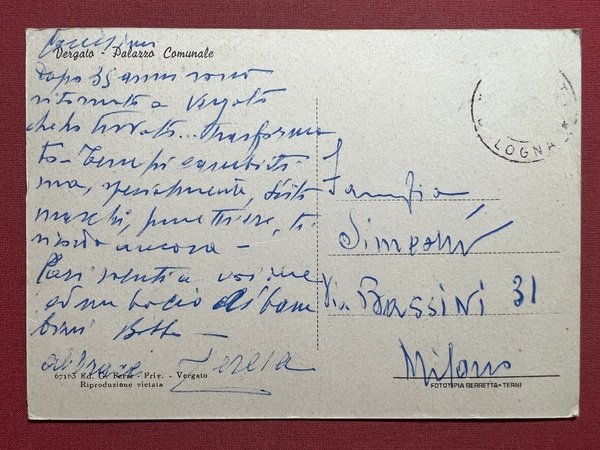 Carissimi
Vergato - Palazzo Comunale
dopo 35 anni sono
ritornata a Vergato
che ho trovato... trasforma
to - Tempi cambiati
ma, specialmente,
maschi,
ancora -
Cari saluti a voi
ed un bacio ai bam
bini
abbracci Teresa
67163 Ed. G. - Priv. - Vergato
Riproduzione vietata
LOGNA
Famiglia
Simeoni
Via Bassini 31
Milano
FOTOTIPIA BERRETTA - TERNI